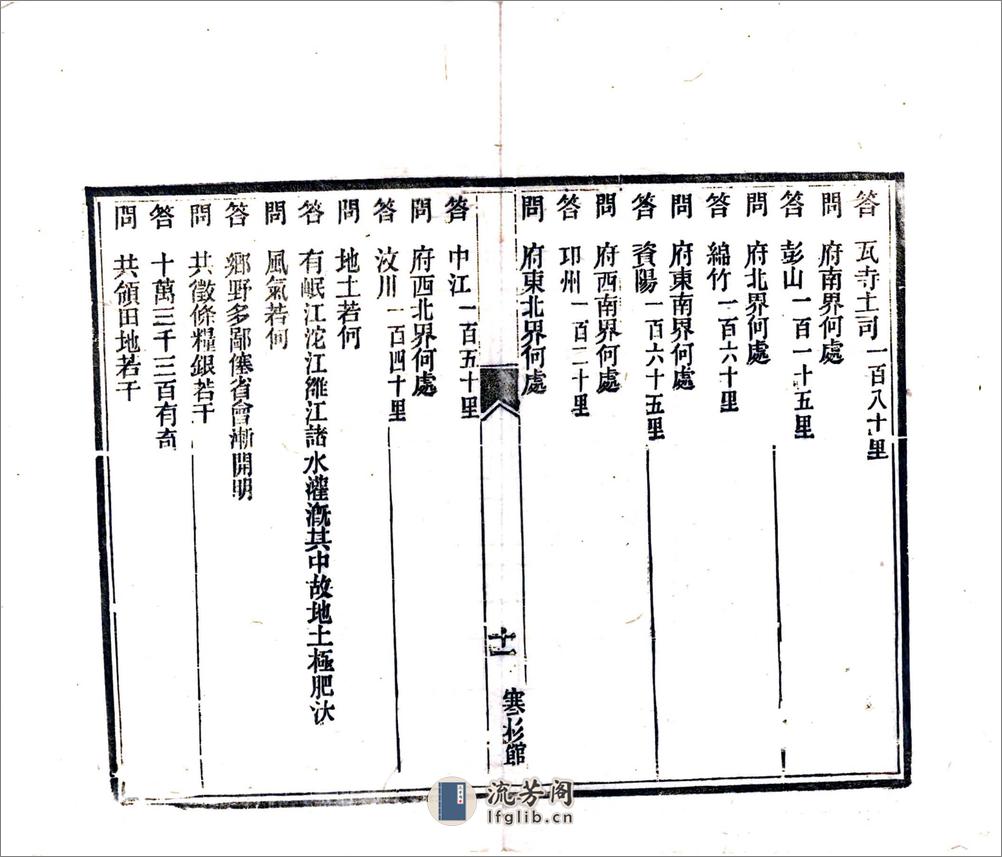 答 瓦寺土司一百八十里
問 府南界何處
答 彭山一百一十五里
問 府北界何處
答 綿竹一百六十里
問 府東南界何處
答 資陽一百六十五里
問 府西南界何處
答 邛州一百二十里
問 府東北界何處
十一 寒杉館
答 中江一百五十里
問 府西北界何處
答 汶川一百四十里
問 地土若何
答 有岷江沱江雒江諸水灌漑其中故地土極肥沃
問 風氣若何
答 鄉野多鄙僿省會漸開明
問 共徵條糧銀若干
答 十萬三千三百有奇
問 共領田地若干
流芳阁
lfglib.cn